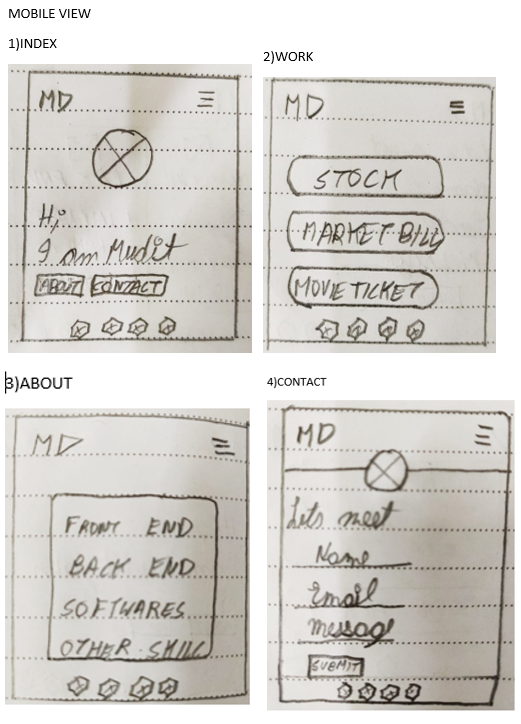 MOBILE VIEW
1)INDEX
MD
Hi,
I am Mudit
ABOUT CONTACT
2)WORK
MD
STOCK
MARKET BILL
MOVIE TICKET
3)ABOUT
MD
FRONT END
BACK END
SOFTWARES
OTHER SKILL
4)CONTACT
MD
Lets meet
Name
Email
message
SUBMIT